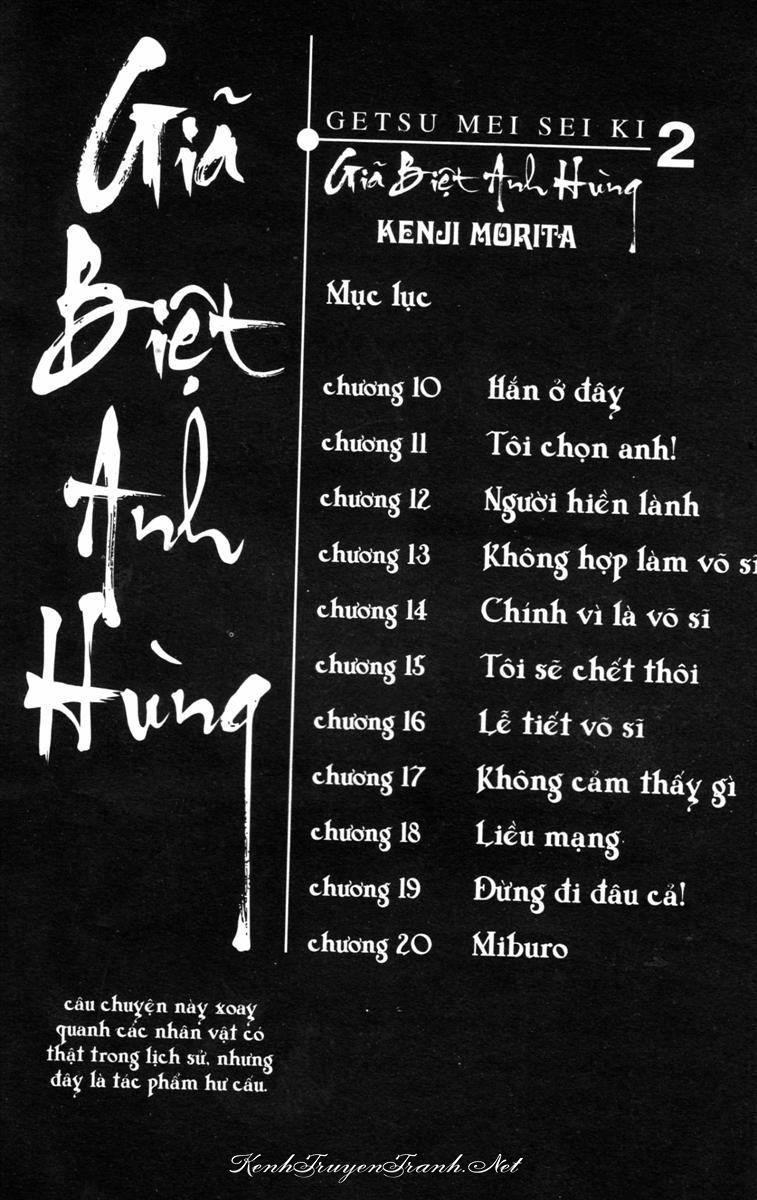 Giã
Biệt
Anh
Hùng
GETSU MEI SEI KI 2
Giã Biệt Anh Hùng
KENJI MORITA
Mục lục
chương 10 Hắn ở đây
chương 11 Tôi chọn anh!
chương 12 Người hiền lành
chương 13 Không hợp làm võ sĩ
chương 14 Chính vì là võ sĩ
chương 15 Tôi sẽ chết thôi
chương 16 Lễ tiết võ sĩ
chương 17 Không cảm thấy gì
chương 18 Liều mạng
chương 19 Đừng đi đâu cả!
chương 20 Miburo
câu chuyện này xoay
quanh các nhân vật có
thật trong lịch sử, nhưng
đây là tác phẩm hư cấu.
KenhTruyenTranh.Net